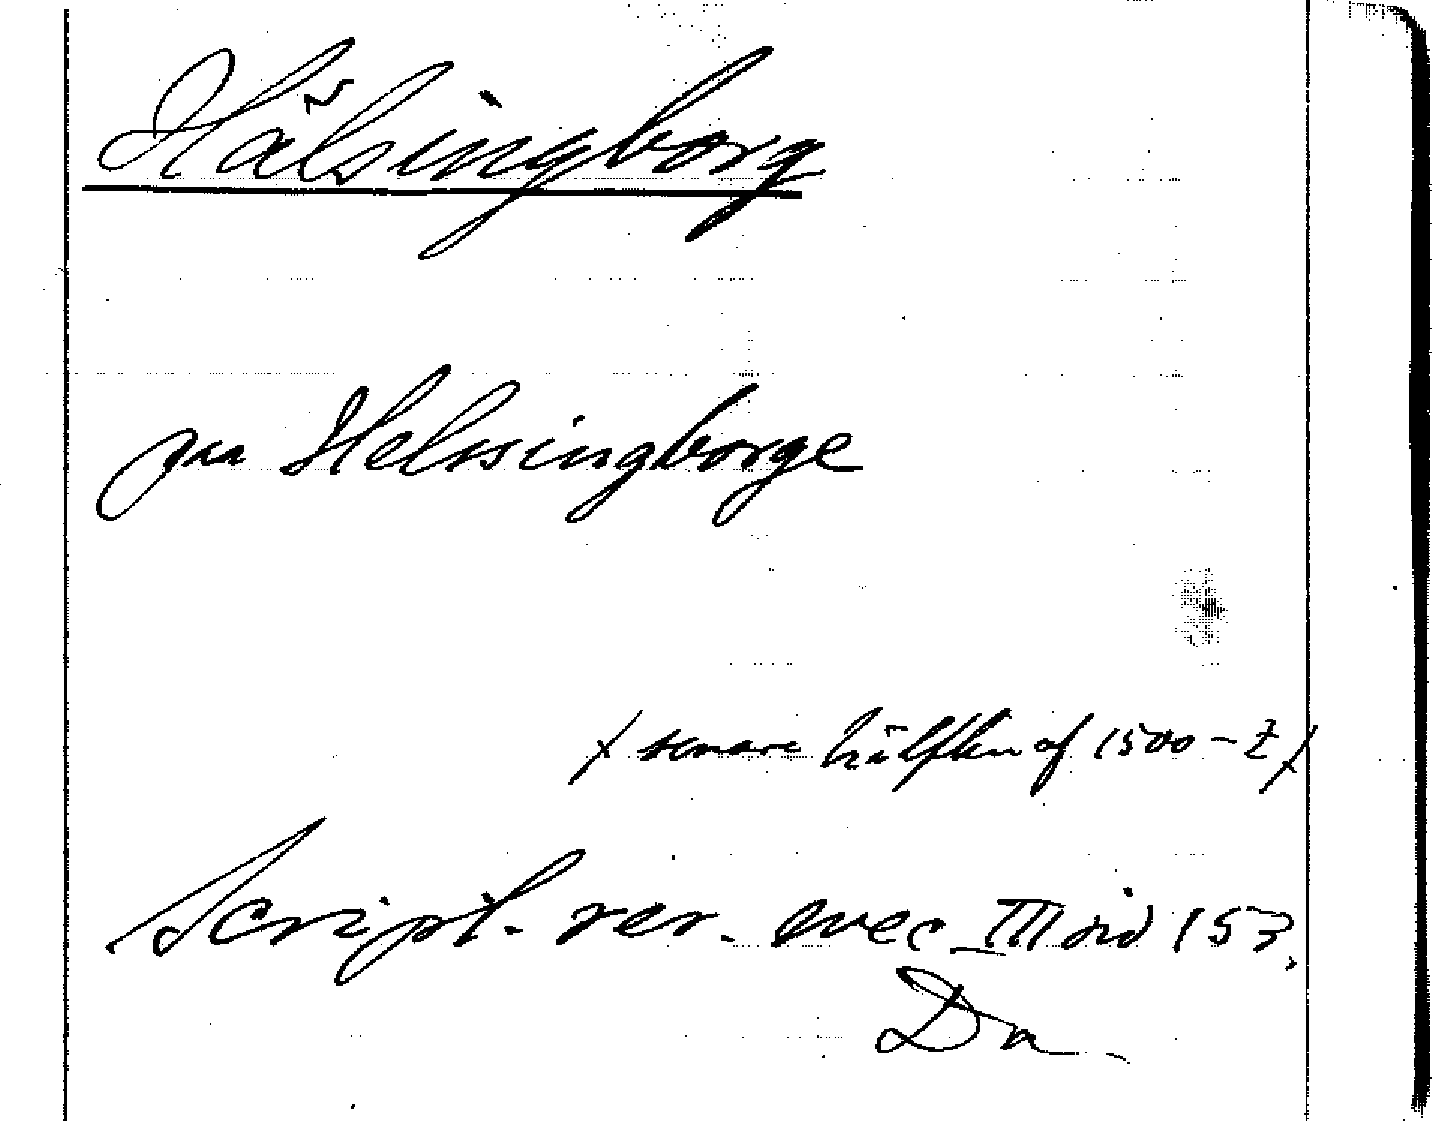 Hälsingborg
paa Helssingborge
/ senare hälften af 1500-t /
Script. rer. svec. III sid 153,
Da